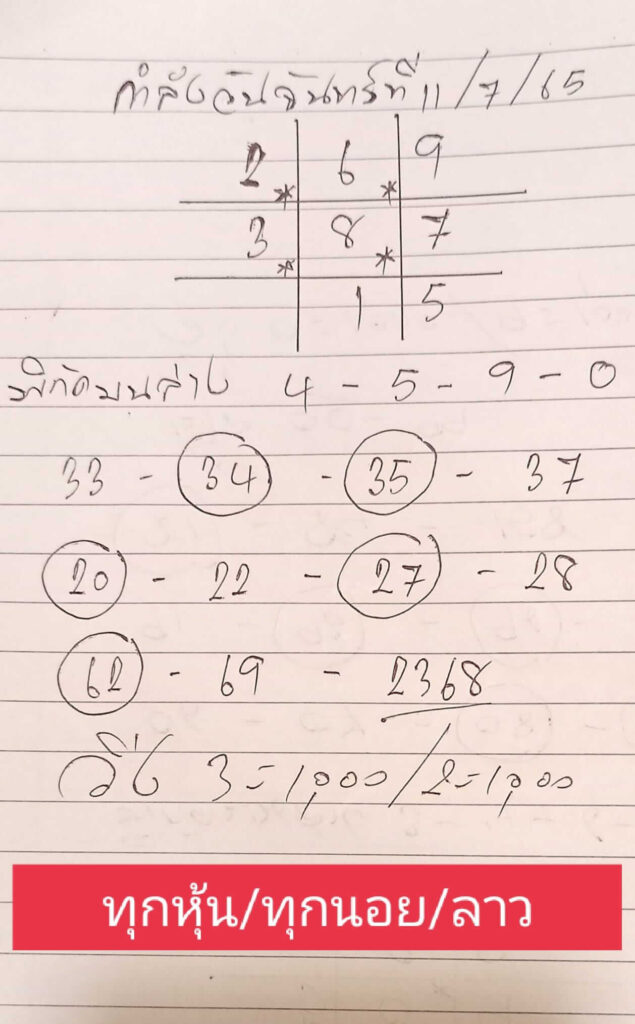 กำลังวันจันทร์ที่ 11/7/65
2 * 6 * 9
3 * 8 * 7
1 5
พิกัดบนล่าง 4 - 5 - 9 - 0
33 - 34 - 35 - 37
20 - 22 - 27 - 28
62 - 69 - 2368
วิ่ง 3=1,000/2=1,000
ทุกหุ้น/ทุกนอย/ลาว